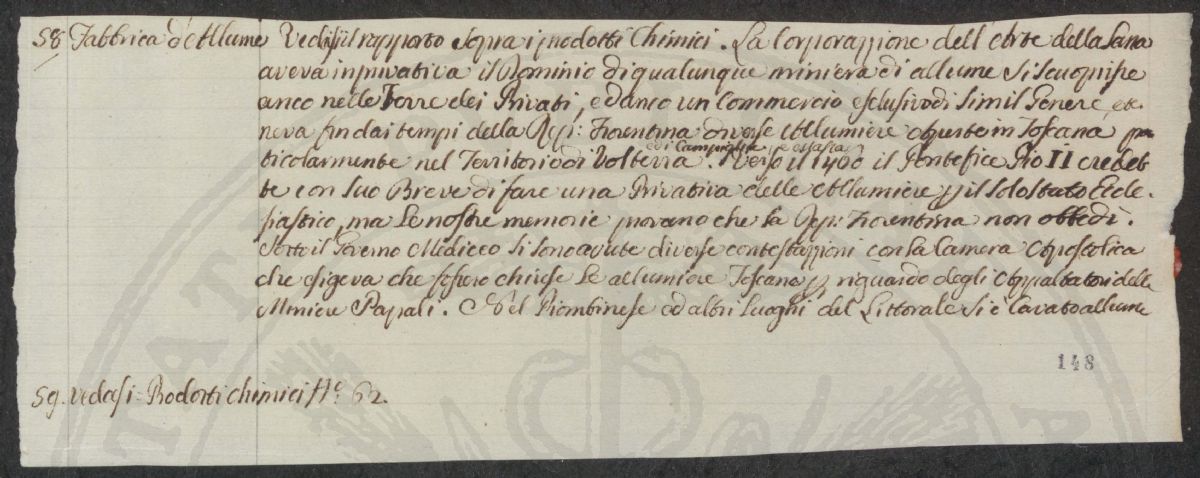 58 Fabbrica d'Allume Vedisi il rapporto sopra i prodotti Chimici. La Corporazzione dell'Arte della Lana
aveva in privativa il Dominio di qualunque miniera di allume si scuoprisse
anco nelle Terre dei Privati, ed anco un Commercio esclusivo di simil Genere, e te-
neva fin dai tempi della Rep: Fiorentina diverse Allumiere aperte in Toscana, par
ticolarmente nel Territorio di Volterra.
e di Campiglia, e Massa
Verso il 1460 il Pontefice Pio II credet
te con suo Breve di fare una Privativa delle Allumiere p il solo Stato Eccle-
siastico, ma le nostre memorie provano che la Rep: Fiorentina non obbedì.
Sotto il Governo Mediceo si sono avute diverse contestazzioni con la Camera Apostolica
che esigeva che fossero chiuse le allumiere Toscane p riguardo degli Appaltatori delle
Miniere Papali. Nel Piombinese ed altri Luoghi del Littorale si è cavato allume
148
59. vedasi Prodotti chimici N° 62.